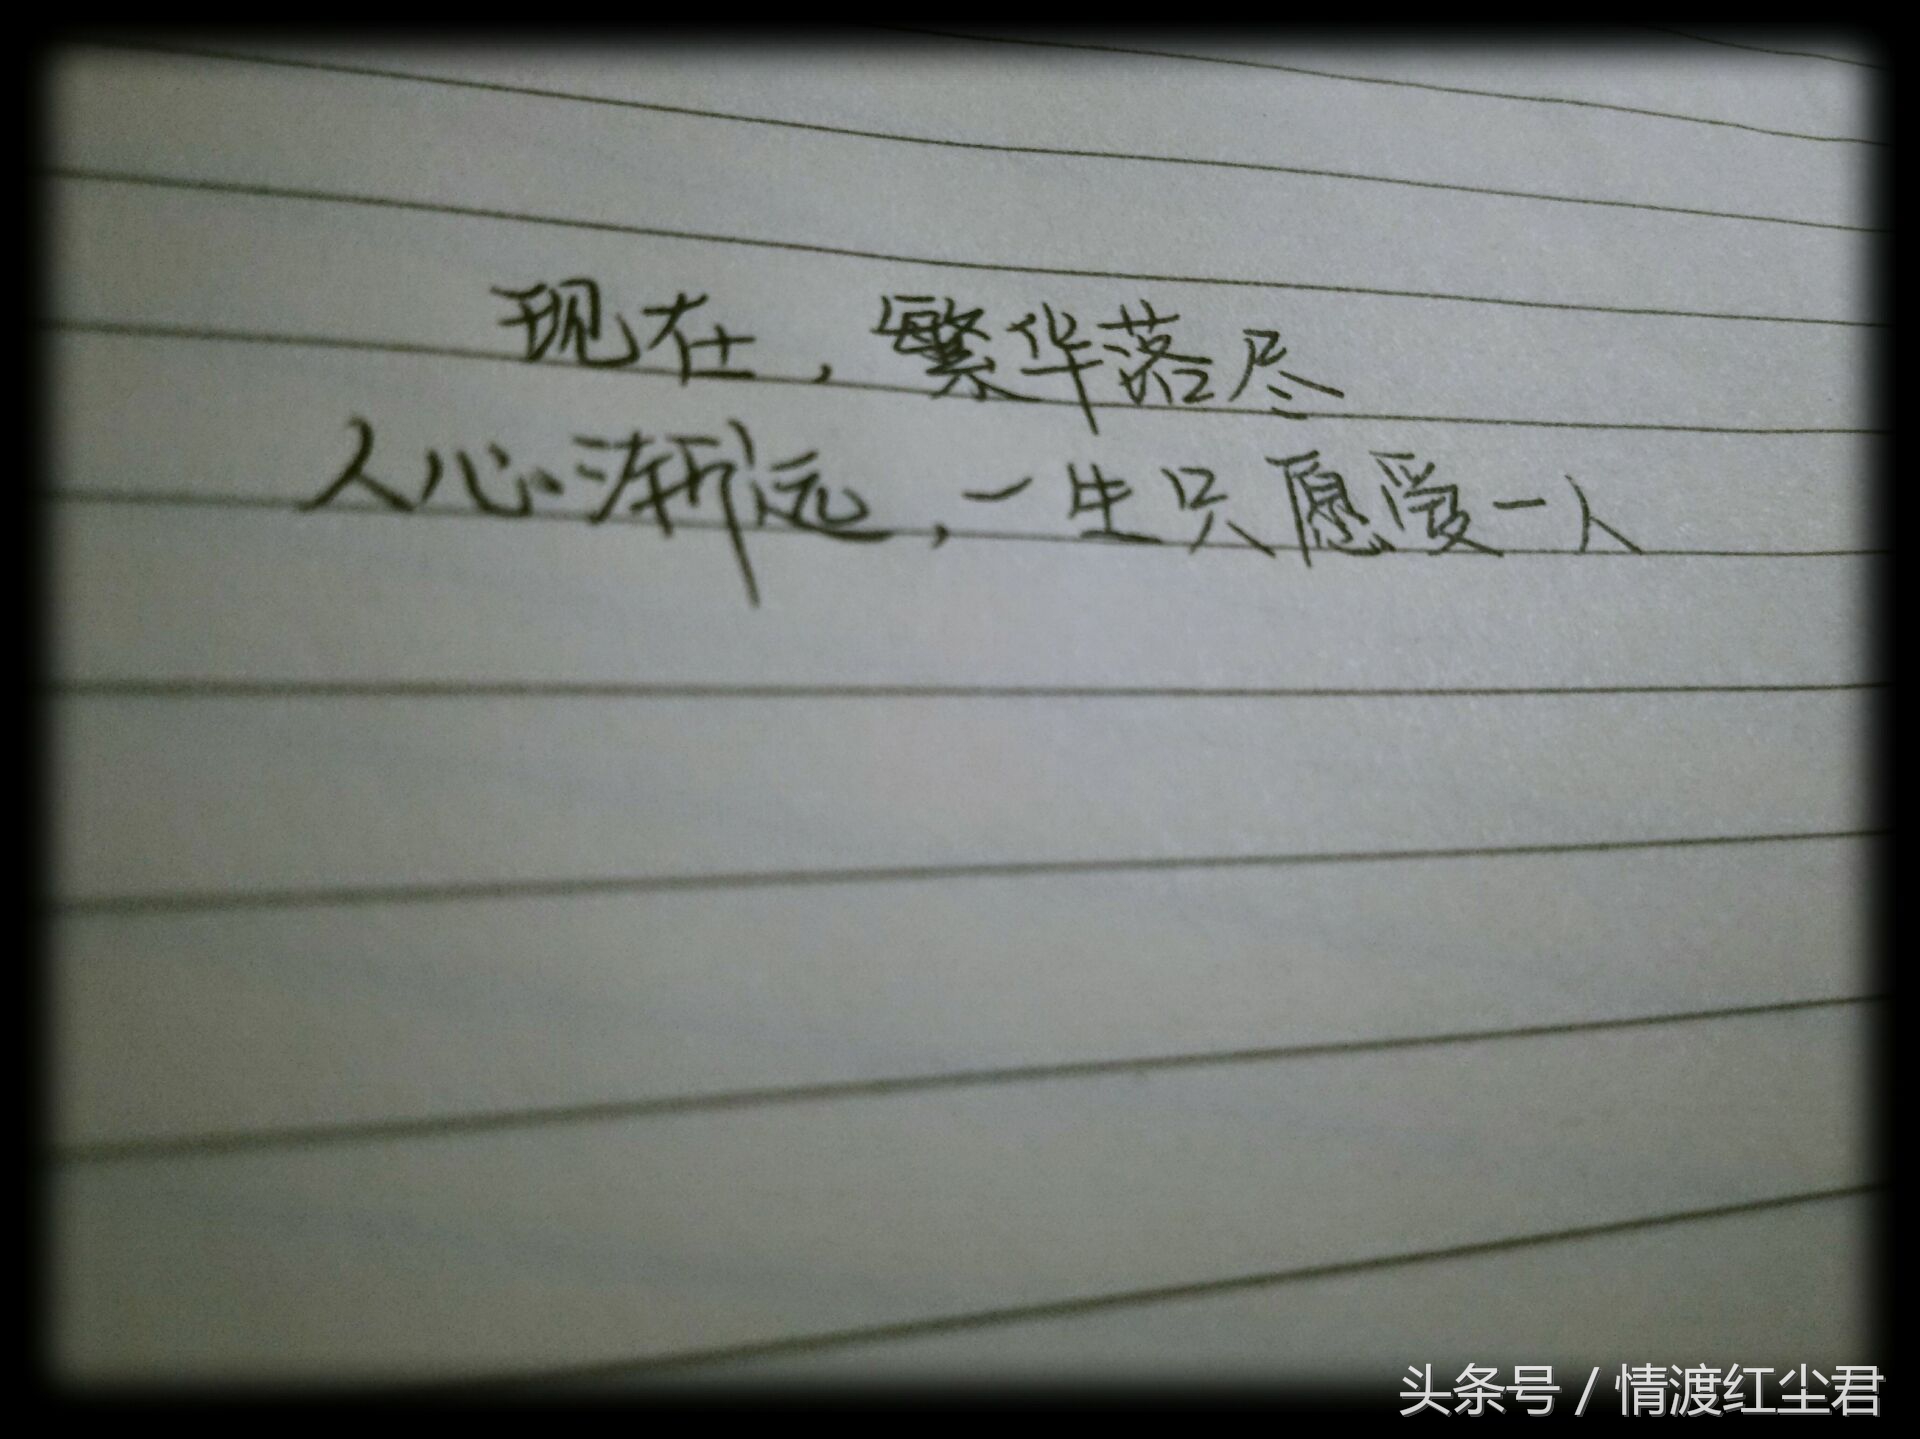 现在，繁华落尽
人心渐远，一生只愿爱一人
头条号 / 情渡红尘君